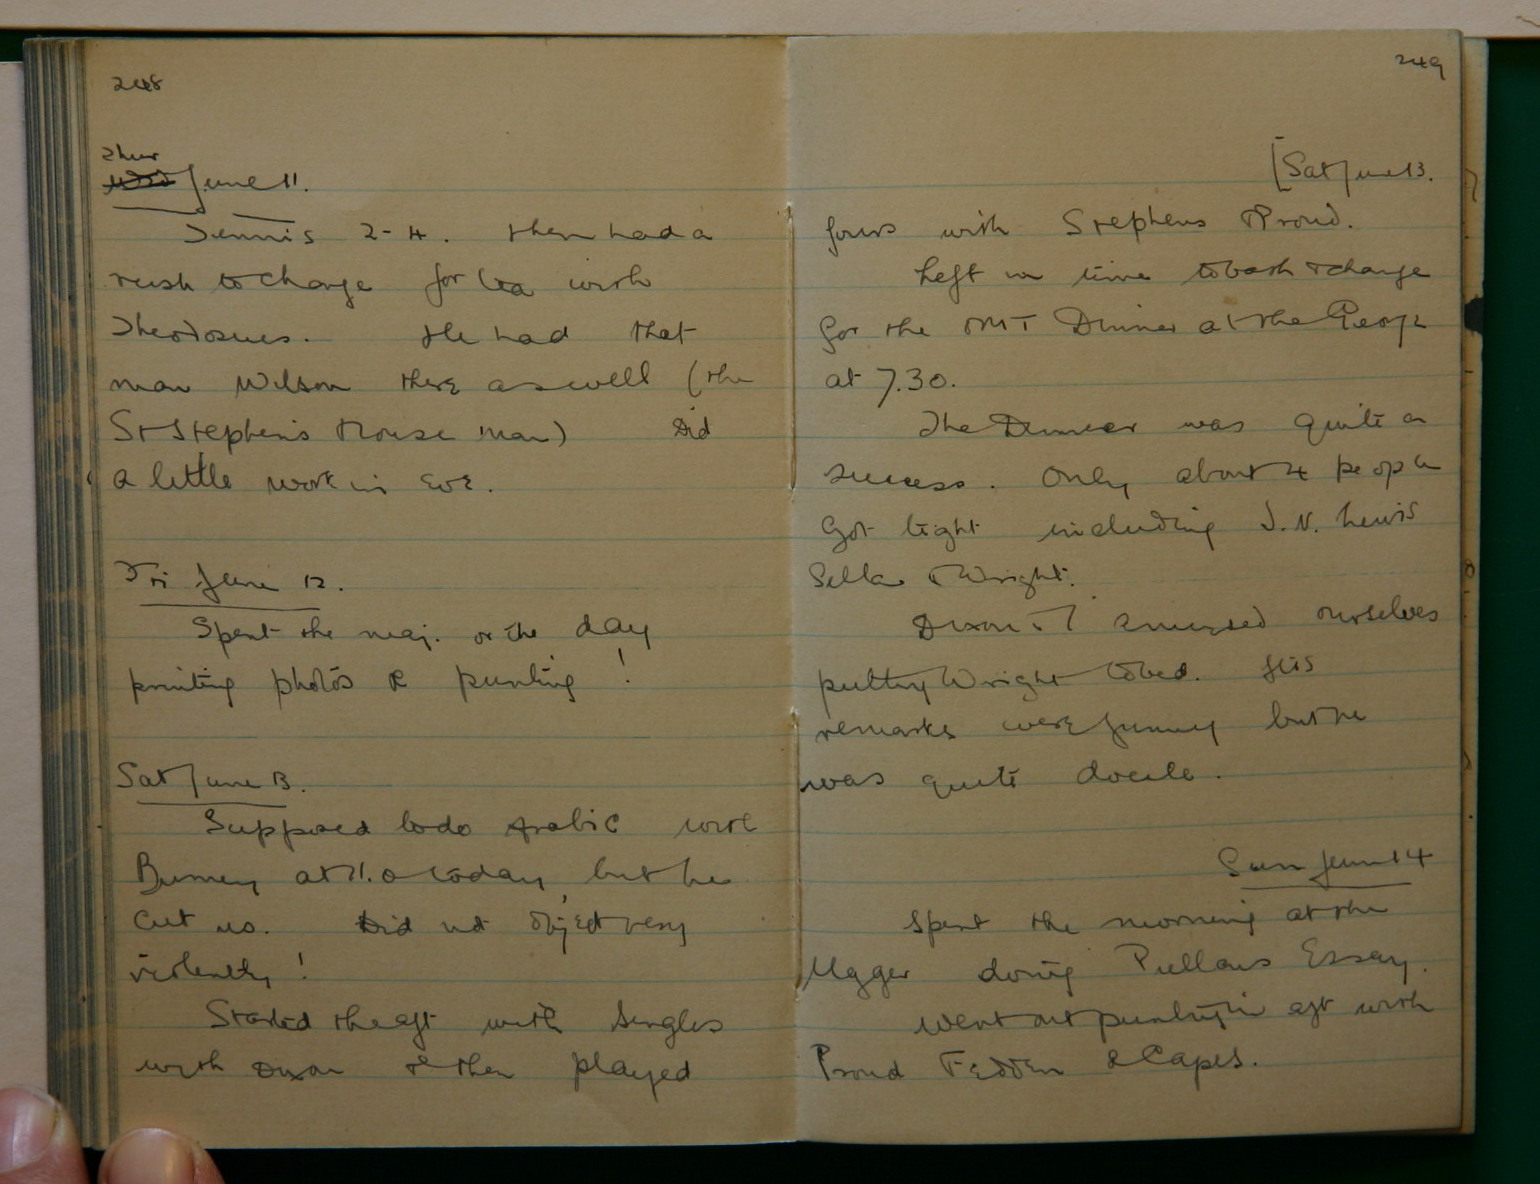 248
Thur
Wed June 11.
Tennis 2-4. Then had a
rush to change for tea with
Theodosius. He had that
man Wilson there as well (the
St Stephen's House man) Did
a little work in eve.
Fri June 12.
Spent the maj. of the day
printing photos & punting!
Sat June 13.
Supposed to do Arabic with
Burney at 11.0 today, but he
cut us. Did not object very
violently!
Started the aft with singles
with Dixon & then played
249
[Sat June 13.
fours with Stephens & Proud.
Left in time to bath & change
for the OMT Dinner at the George
at 7.30.
The Dinner was quite a
success. Only about 4 people
got tight including J.N. Lewis
& Wright.
Dixon & I amused ourselves
putting Wright to bed. His
remarks were funny but he
was quite docile.
Sun June 14
Spent the morning at the
Ugger doing Pullans Essay.
Went out punting in aft with
Proud Fedden & Capes.